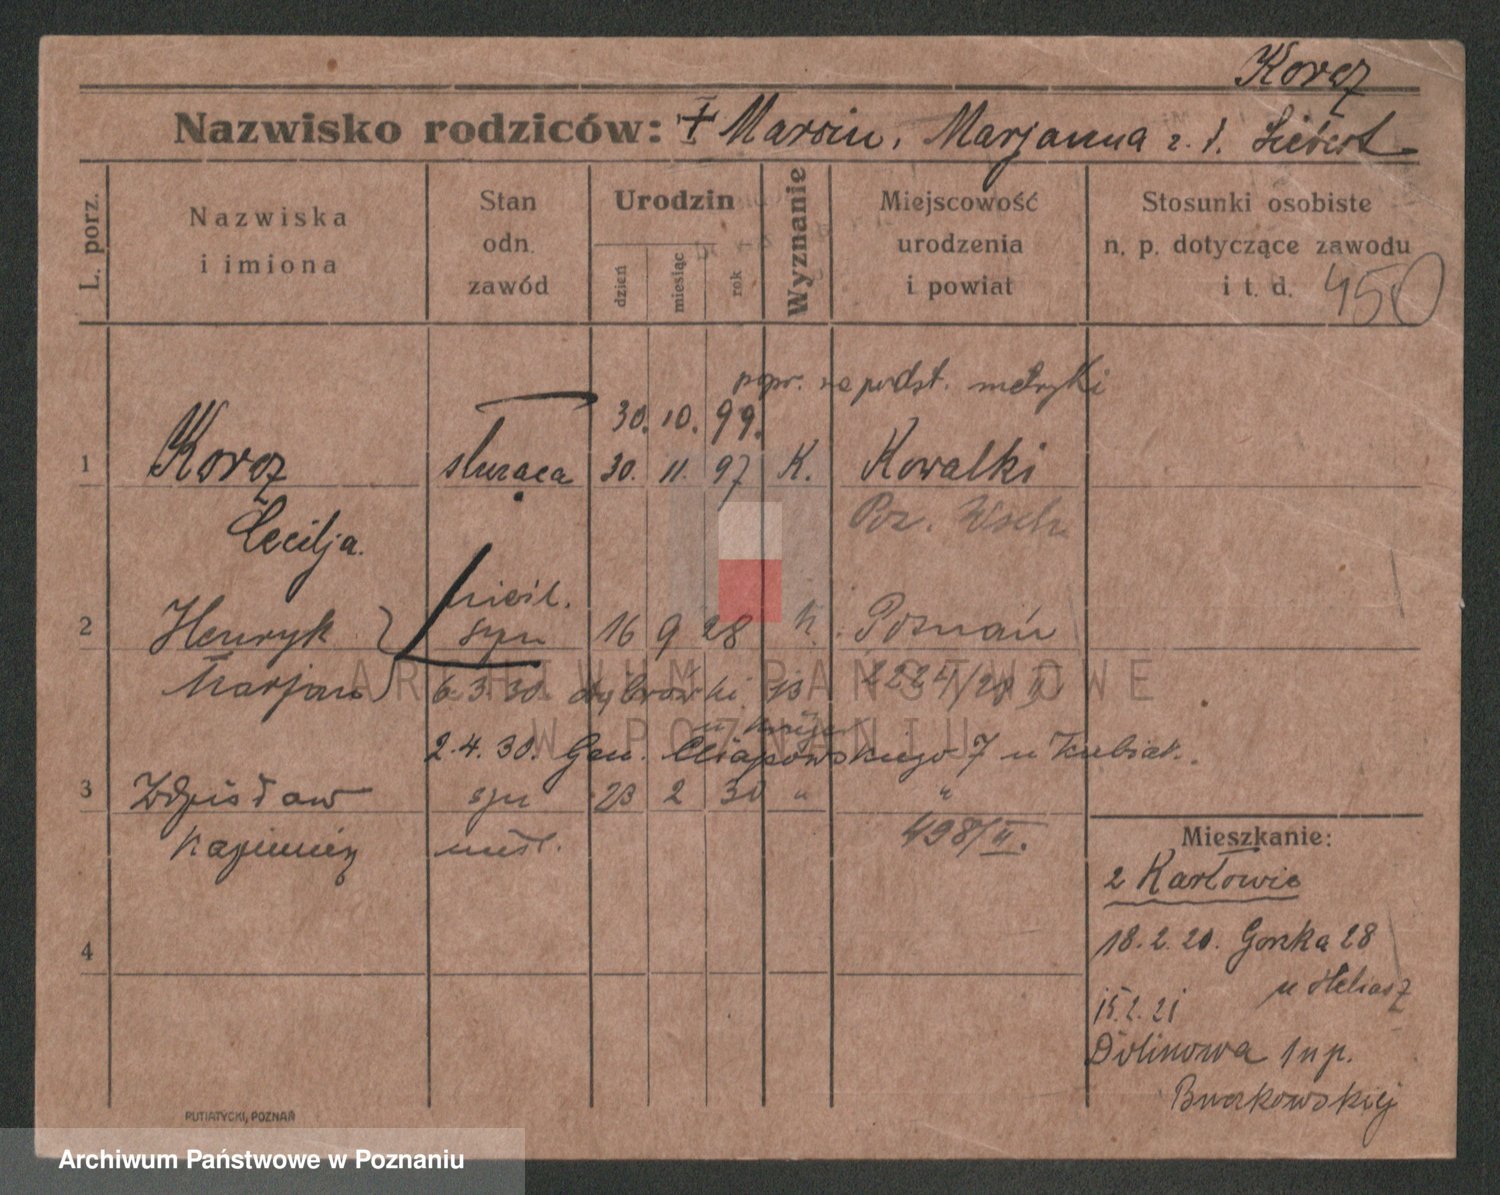 Korcz
Nazwisko rodziców: † Marcin, Marjanna z. d. Siebert
L. porz.
Nazwiska
i imiona
Stan
odn.
zawód
Urodzin
dzień
miesiąc
rok
Wyznanie
Miejscowość
urodzenia
i powiat
Stosunki osobiste
n. p. dotyczące zawodu
i t. d.
450
popr. na podst. metryki
30. 10. 99.
1 Korcz służąca 30. 11. 97 K. Kowalki
Poz. Wsch.
Cecilja.
nieśl.
2 Henryk syn 16 9 28 K. Poznań
Marjan 6.3.30. Dąbrowski
2.4.30. Gen. Chłapowskiego 7 u Kubiak.
3 Zdzisław syn 23 2 30 " "
Kazimierz nieśl. 498/II.
Mieszkanie:
z Karłowic
18.2.20. Gorzka 28
u Heliasz
4
15.2.21
Dolinowa 1 u p.
Burkowskiej
PUTIATYCKI, POZNAŃ
ARCHIWUM PAŃSTWOWE
W POZNANIU
Archiwum Państwowe w Poznaniu